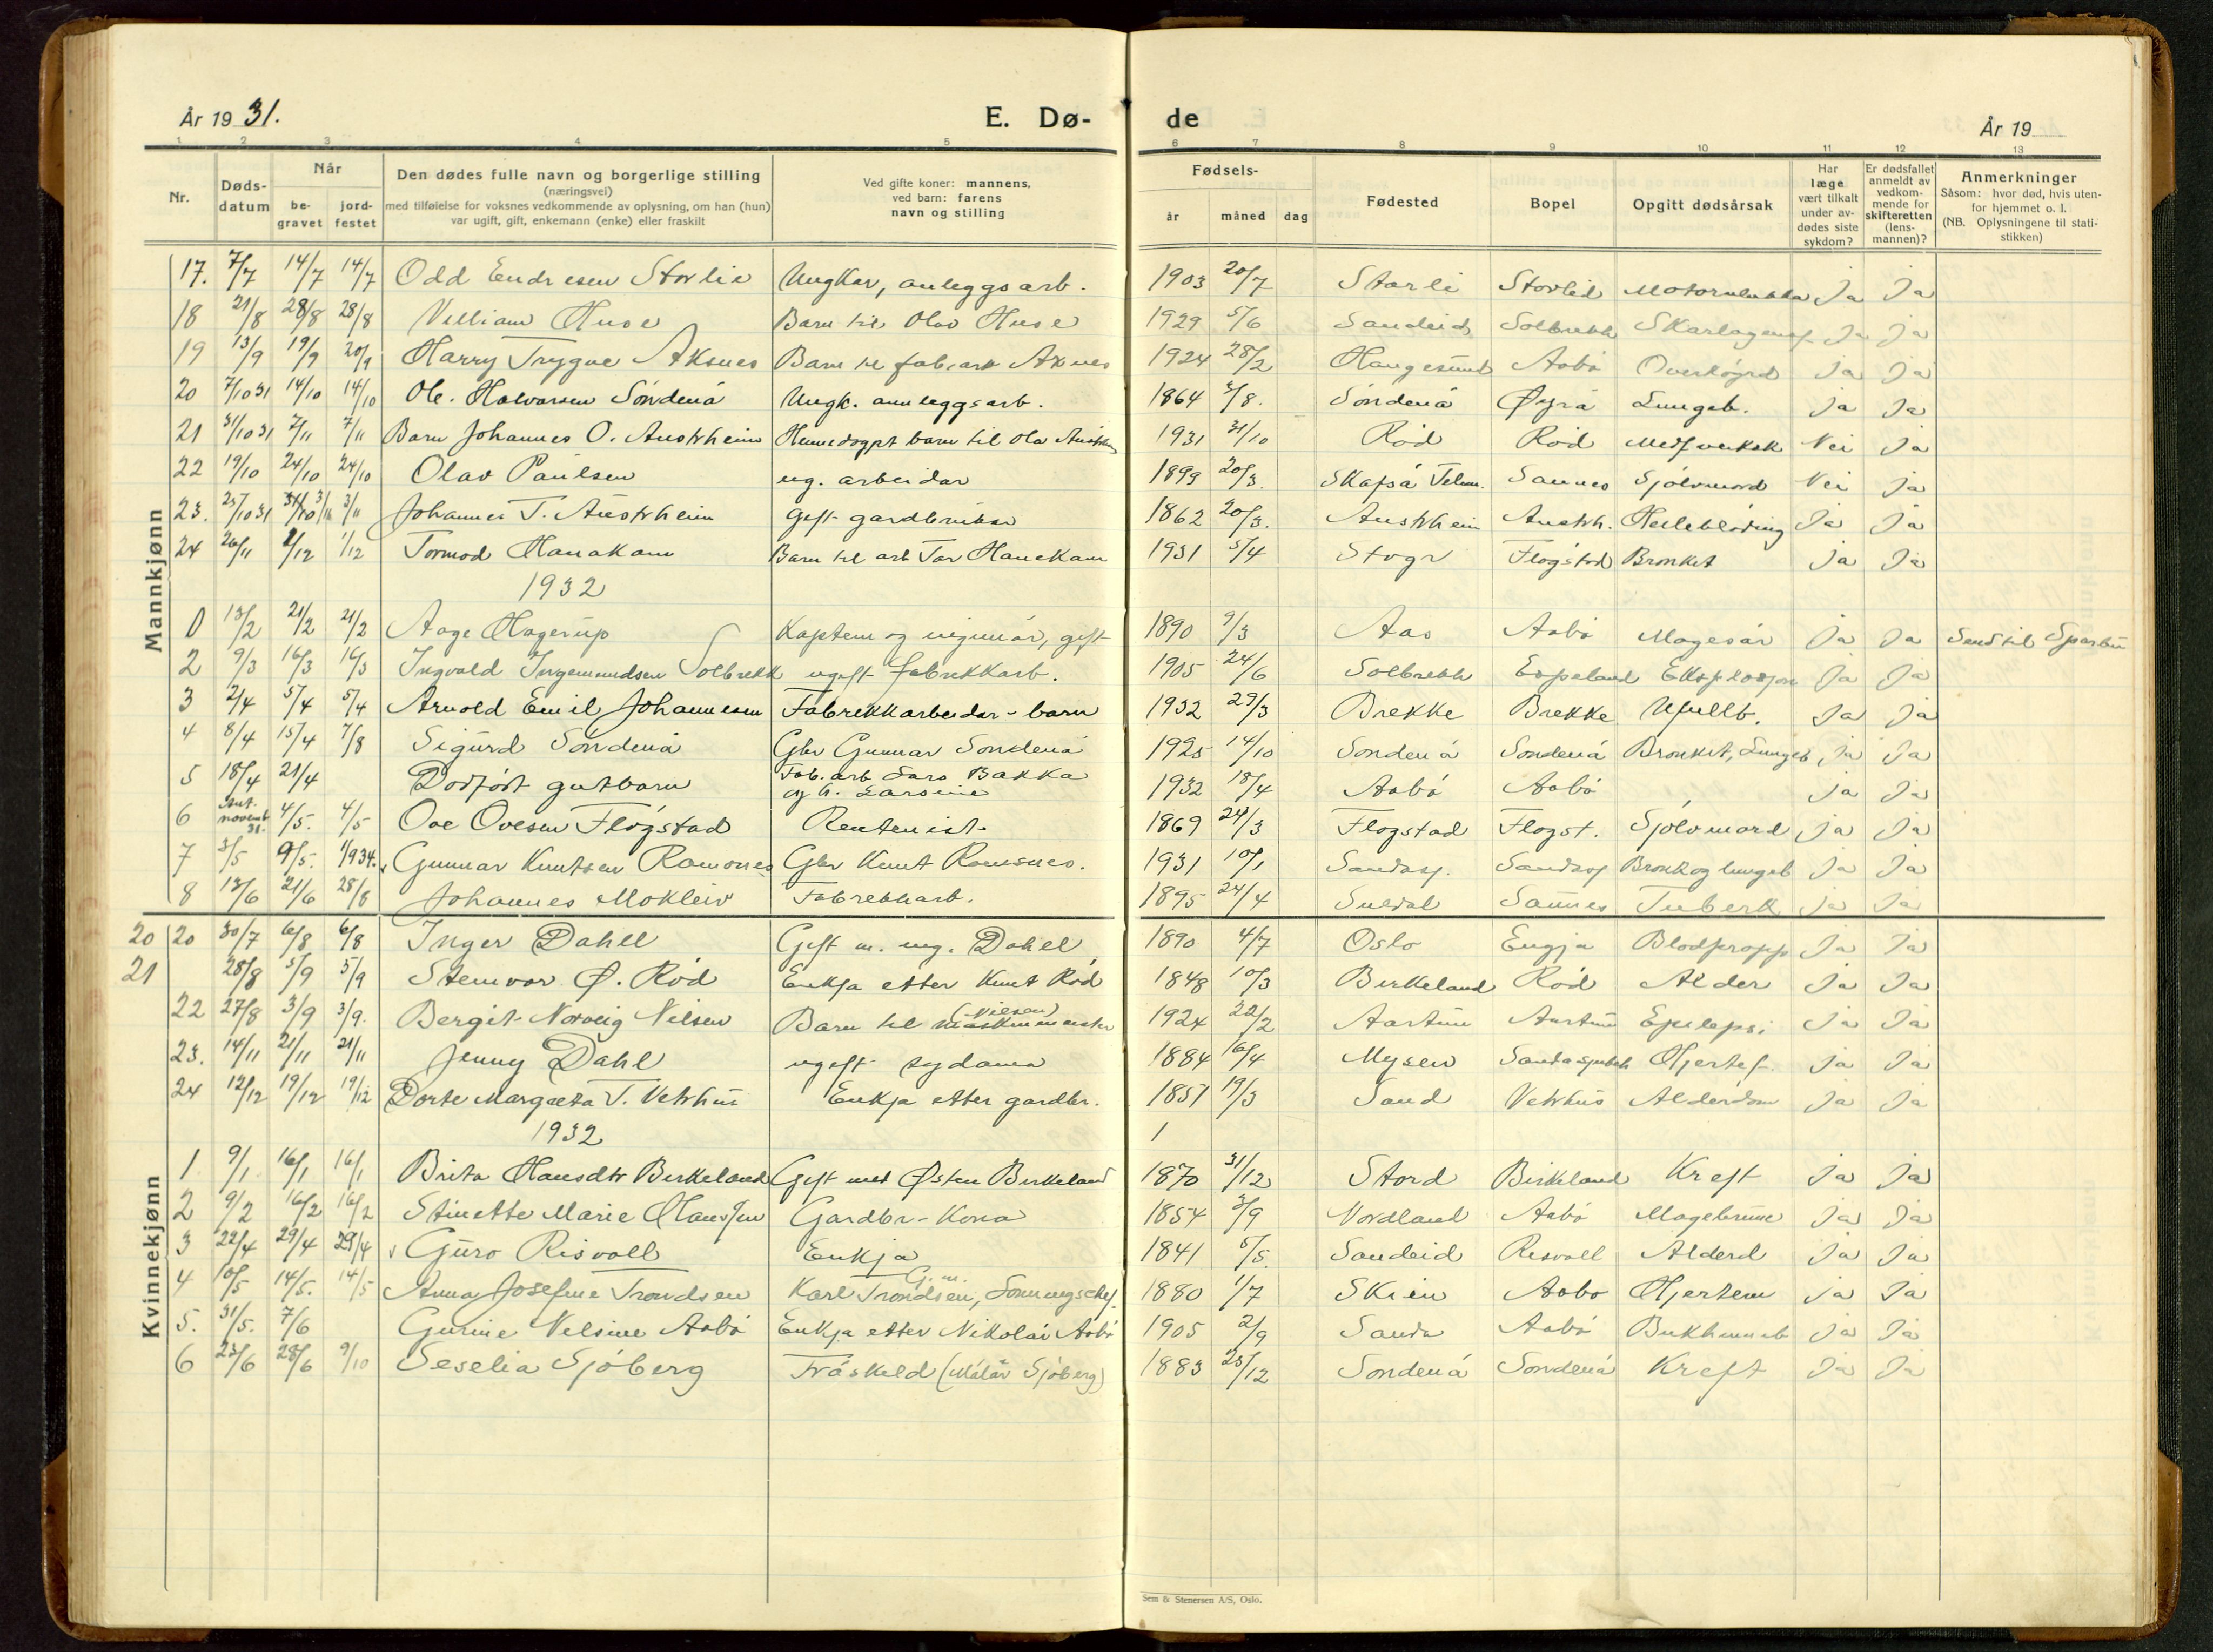 År 19 31.
E. Dø-
de
År 19
1 2 3 4 5 6 7 8 9 10 11 12 13
Nr.
Døds-
datum
Når
be-
gravet
jord-
festet
Den dødes fulle navn og borgerlige stilling
(næringsvei)
med tilføielse for voksnes vedkommende av oplysning, om han (hun)
var ugift, gift, enkemann (enke) eller fraskilt
Ved gifte koner: mannens,
ved barn: farens
navn og stilling
Fødsels-
år måned dag
Fødested
Bopel
Opgitt dødsårsak
Har
læge
vært tilkalt
under av-
dødes siste
sykdom?
Er dødsfallet
anmeldt av
vedkom-
mende for
skifteretten
(lens-
mannen)?
Anmerkninger
Såsom: hvor død, hvis uten-
for hjemmet o. l.
(NB. Oplysningene til stati-
stikken)
Mannkjønn
17. 7/7 14/7 14/7 Odd Endresen Storlie Ungkar, anleggsarb. 1903 20/7 Storli Storlid Ja Ja
18 21/8 28/8 28/8 Villiam Huse Barn til Olav Huse 1929 5/6 Sandeid Solbrekk Skarlagensf Ja Ja
19 13/9 19/9 20/9 Harry Trygve Aksnes Barn til fab.arb Axnes 1924 28/2 Haugesund Aabø Overkøyrd Ja Ja
20 7/10 31 14/10 14/10 Ole. Halvorsen Söndenå Ungk. annleggsarb. 1864 3/8. Söndenå Øyrå Lungeb. Ja Ja
21 31/10 31 7/11 7/11 Barn Johannes O. Austrheim Heimedøypt barn til Ola 1931 31/10 Röd Röd Nei Ja
22 19/10 24/10 24/10 Olav Paulsen ug. arbeidar 1899 20/3. Skafså Telem. Saunes Sjölvmord Nei Ja
23. 25/10 31 31/10 3/11 3/11 Johannes T. Austrheim gift gardbrukar 1862 20/3. Austrheim Austrh. Heilebløding Ja Ja
24 26/11 2/12 1/12 Tormod Hanakam Barn til arb Tor Hanekam 1931 5/4 Flogstad Bronkit Ja Ja
1932
13/2 21/2 21/2 Aage Hagerup Kaptein og ingeniör, gift 1890 9/3 Aas Aabö Magesår Ja Ja Send til
2 9/3 16/3 16/3 Ingvald Ingemundsen Solbrekk ugift fabrekkarb. 1905 24/6 Solbrekk Espeland Eksplosjon Ja Ja
3 2/4 5/4 5/4 Arnold Emil Johannesen Fabrekkarbeidar-barn 1932 29/3 Brekke Brekke Ufullb. Ja Ja
4 8/4 15/4 7/8 Sigurd Söndenå Gbr Gunnar Söndenå 1925 14/10 Sondenå Sondenå Bronkit, Lungeb Ja Ja
5 18/4 21/4 Dödfödt gutbarn Fab. arb Lars Bakka
og h. Larsine 1932 18/4 Aabö Aabö Ja Ja
6 Ant.
novemb
31. 4/5. 4/5 Ove Ovesen Flógstad Rentenist 1869 24/3 Flogstad Flogst. Sjölvmord Ja Ja
7 3/5 9/5. 1/9 34. Gunnar Knutsen Ramsnes Gbr Knut Ramsnes. 1931 10/1 Sandasj. Sandasj Bronk og lungeb Ja Ja
8 13/6 21/6 28/8 Johannes Mokleiv Fabrekkarb. 1895 24/4 Suldal Saunes Tuberk Ja Ja
Kvinnekjønn
20 20 30/7 6/8 6/8 Inger Dahll Gift m. ing. Dahll 1890 4/7 Oslo Engja Blodpropp Ja Ja
21 28/8 5/9 5/9 Steinvor Ø. Röd Enkja etter Knut Röd 1848 10/3 Birkeland Röd Alder Ja Ja
22 27/8 3/9 3/9. Bergit Norveig Nilsen Barn til maskinmester (Nilsen) 1924 22/2 Aartun Aartun Epilepsi Ja Ja
23. 14/11 21/11 21/11 Jenny Dahl ugift sydama 1884 16/4 Mysen Hjertef. Ja Ja
24 12/12 19/12 19/12 Dorte Margreta T. Vetrhus Enkja etter gardbr. 1851 19/3 Sand Vetrhus Alderdom Ja Ja
1932 1
1 9/1 16/1 16/1 Brita Hansdtr Birkeland Gift med Østen Birkeland 1870 31/12 Stord Birkeland Kreft Ja Ja
2 9/2 16/2 16/2 Stinette Marie Hanssen Gardbr-Kona 1854 3/9 Nordland Aabö Ja Ja
3 22/4 29/4 29/4 Guro Risvoll Enkja 1841 5/5. Sandeid Risvoll Alderd Ja Ja
4 10/5 14/5. 14/5 Anna Josefine Trondsen G. m. Karl Trondsen, 1880 1/7 Skien Aabo Hjertem Ja Ja
5. 31/5. 7/6 Gurine Velsine Aabö Enkja etter Nikolai Aabö 1905 2/9 Sanda Aabö Bukhinneb Ja Ja
6 23/6 28/6 9/10 Seselia Sjöberg Fråskild (Målar Sjöberg) 1883 23/12 Sondenå Sondenå Kreft Ja Ja
Sem & Stenersen A/S, Oslo.